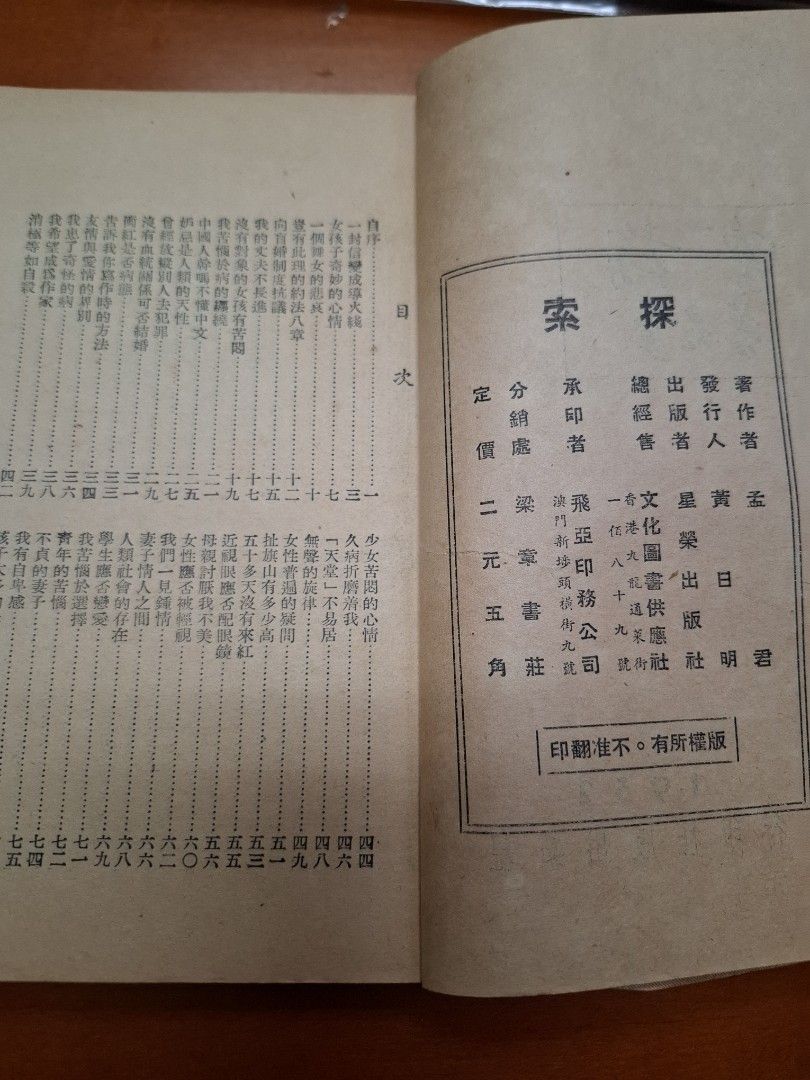 探索
著作者 孟君
發行人 黃日明
出版者 星榮出版社
總經售 文化圖書供應社
香港九龍通菜街
一佰八十九號
承印者 飛亞印務公司
澳門新埗頭橫街九號
分銷處 梁章書莊
定價 二元五角
版權所有。不准翻印
目次
自序 一
一封信變成導火綫 三
女孩子奇妙的心情 七
一個舞女的悲哀 十
豈有此理的約法八章 十二
向盲婚制度抗議 十五
我的丈夫不長進 十七
沒有對象的女孩有苦悶 十九
我苦惱於病的纏繞 二一
中國人幹嗎不懂中文 二五
妒忌是人類的天性 二七
曾經放縱別人去犯罪 二九
沒有血統關係可否結婚 三一
面紅是否病態 三三
告訴我你寫作時的方法 三四
友情與愛情的界別 三六
我患了奇怪的病 三八
我希望成爲作家 三九
消極等如自殺 四二
少女苦悶的心情
久病折磨着我
「天堂」不易居
無聲的旋律
女性普遍的疑問
扯旗山有多少高
五十多天沒有來紅
近視眼應否配眼鏡
母親討厭我不美
女性應否被輕視
我們一見鍾情
妻子情人之間
人類社會的存在
學生應否戀愛
我苦惱於選擇
青年的苦惱
不貞的妻子
我有自卑感
四四
四六
四八
四九
五一
五三
五五
五六
六〇
六二
六六
六八
六九
七一
七二
七四
七五